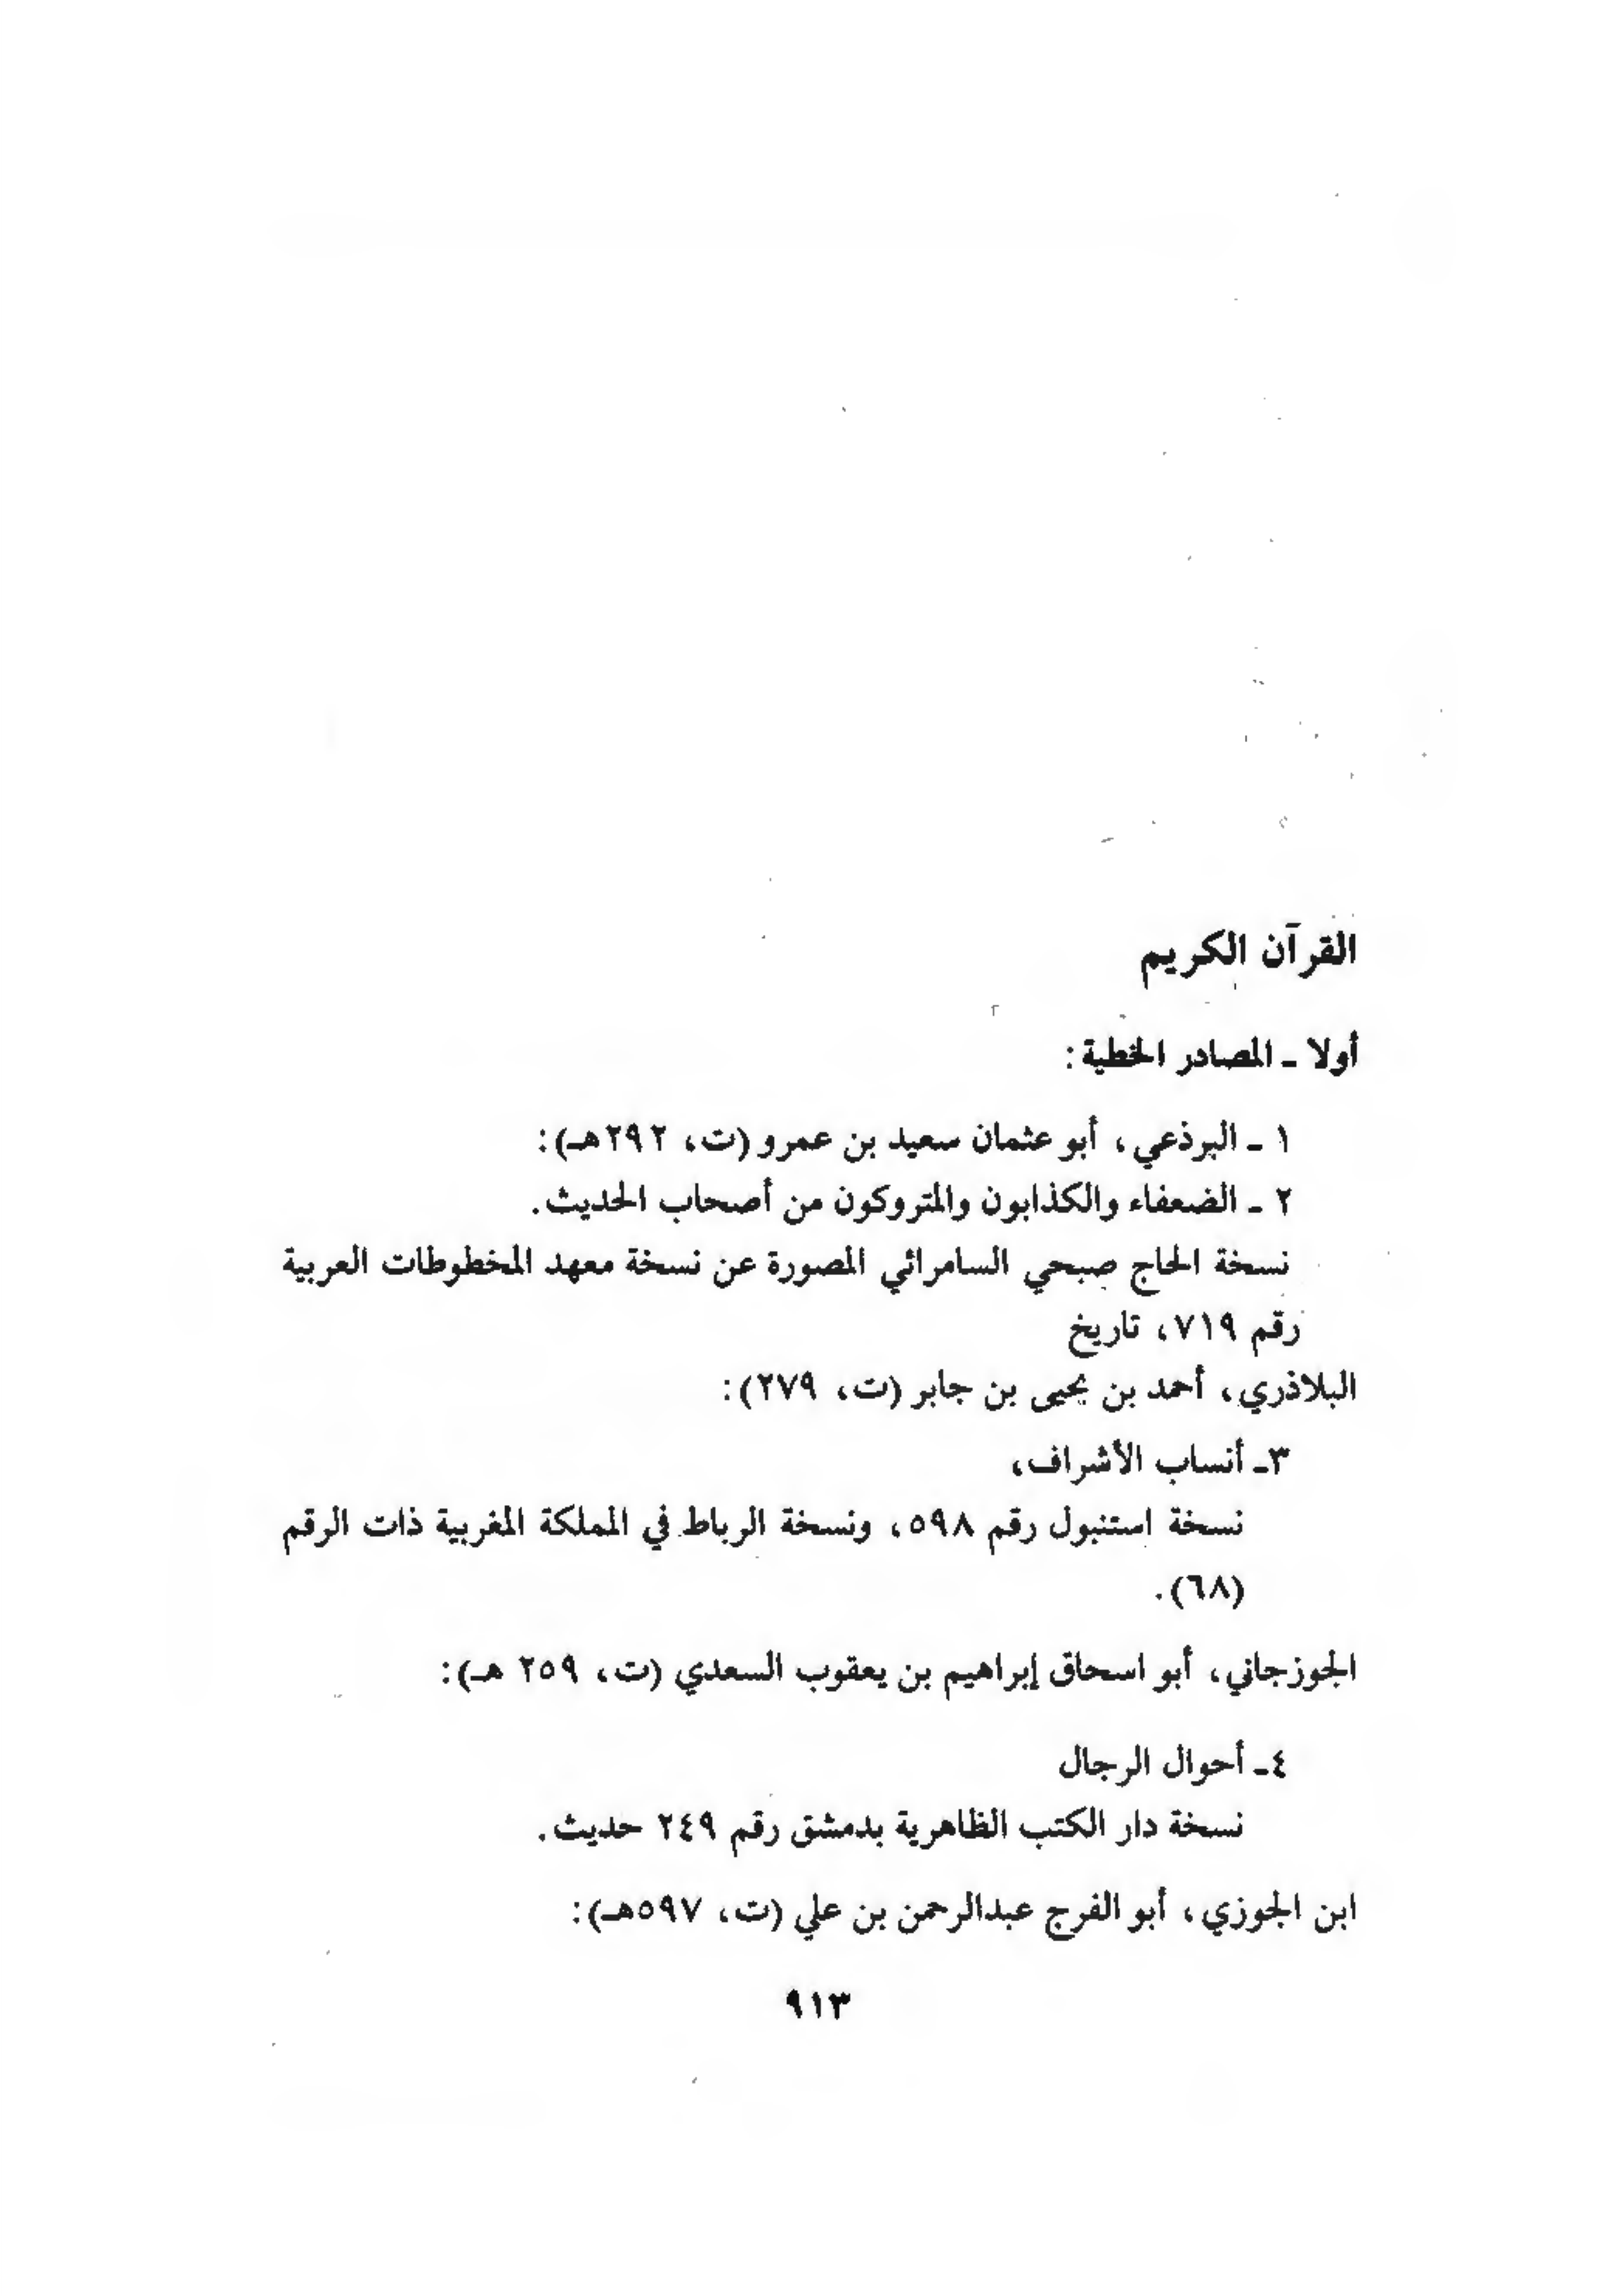 القرآن الكريم
أولا ـ المصادر الخطية :
١ ـ البرذعي ، أبو عثمان سعيد بن عمرو (ت، ٢٩٢هـ) :
٢ ـ الضعفاء والكذابون والمتروكون من أصحاب الحديث .
نسخة الحاج صبحي السامرائي المصورة عن نسخة معهد المخطوطات العربية
رقم ٧١٩، تاريخ
البلاذري، أحمد بن يحيى بن جابر (ت، ٢٧٩) :
٣ـ أنساب الأشراف،
نسخة استنبول رقم ٥٩٨، ونسخة الرباط في المملكة المغربية ذات الرقم
(٦٨) .
الجوزجاني، أبو اسحاق إبراهيم بن يعقوب السعدي (ت، ٢٥٩ هـ) :
٤ـ أحوال الرجال
نسخة دار الكتب الظاهرية بدمشق رقم ٢٤٩ حديث .
ابن الجوزي، أبو الفرج عبدالرحمن بن علي (ت، ٥٩٧هـ) :
٩١٣